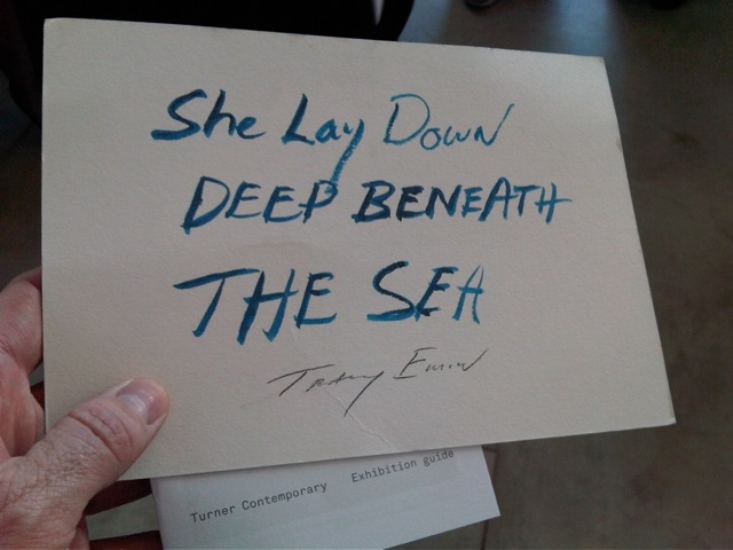 She Lay Down
DEEP BENEATH
THE SEA
Tracey Emin
Turner Contemporary Exhibition guide